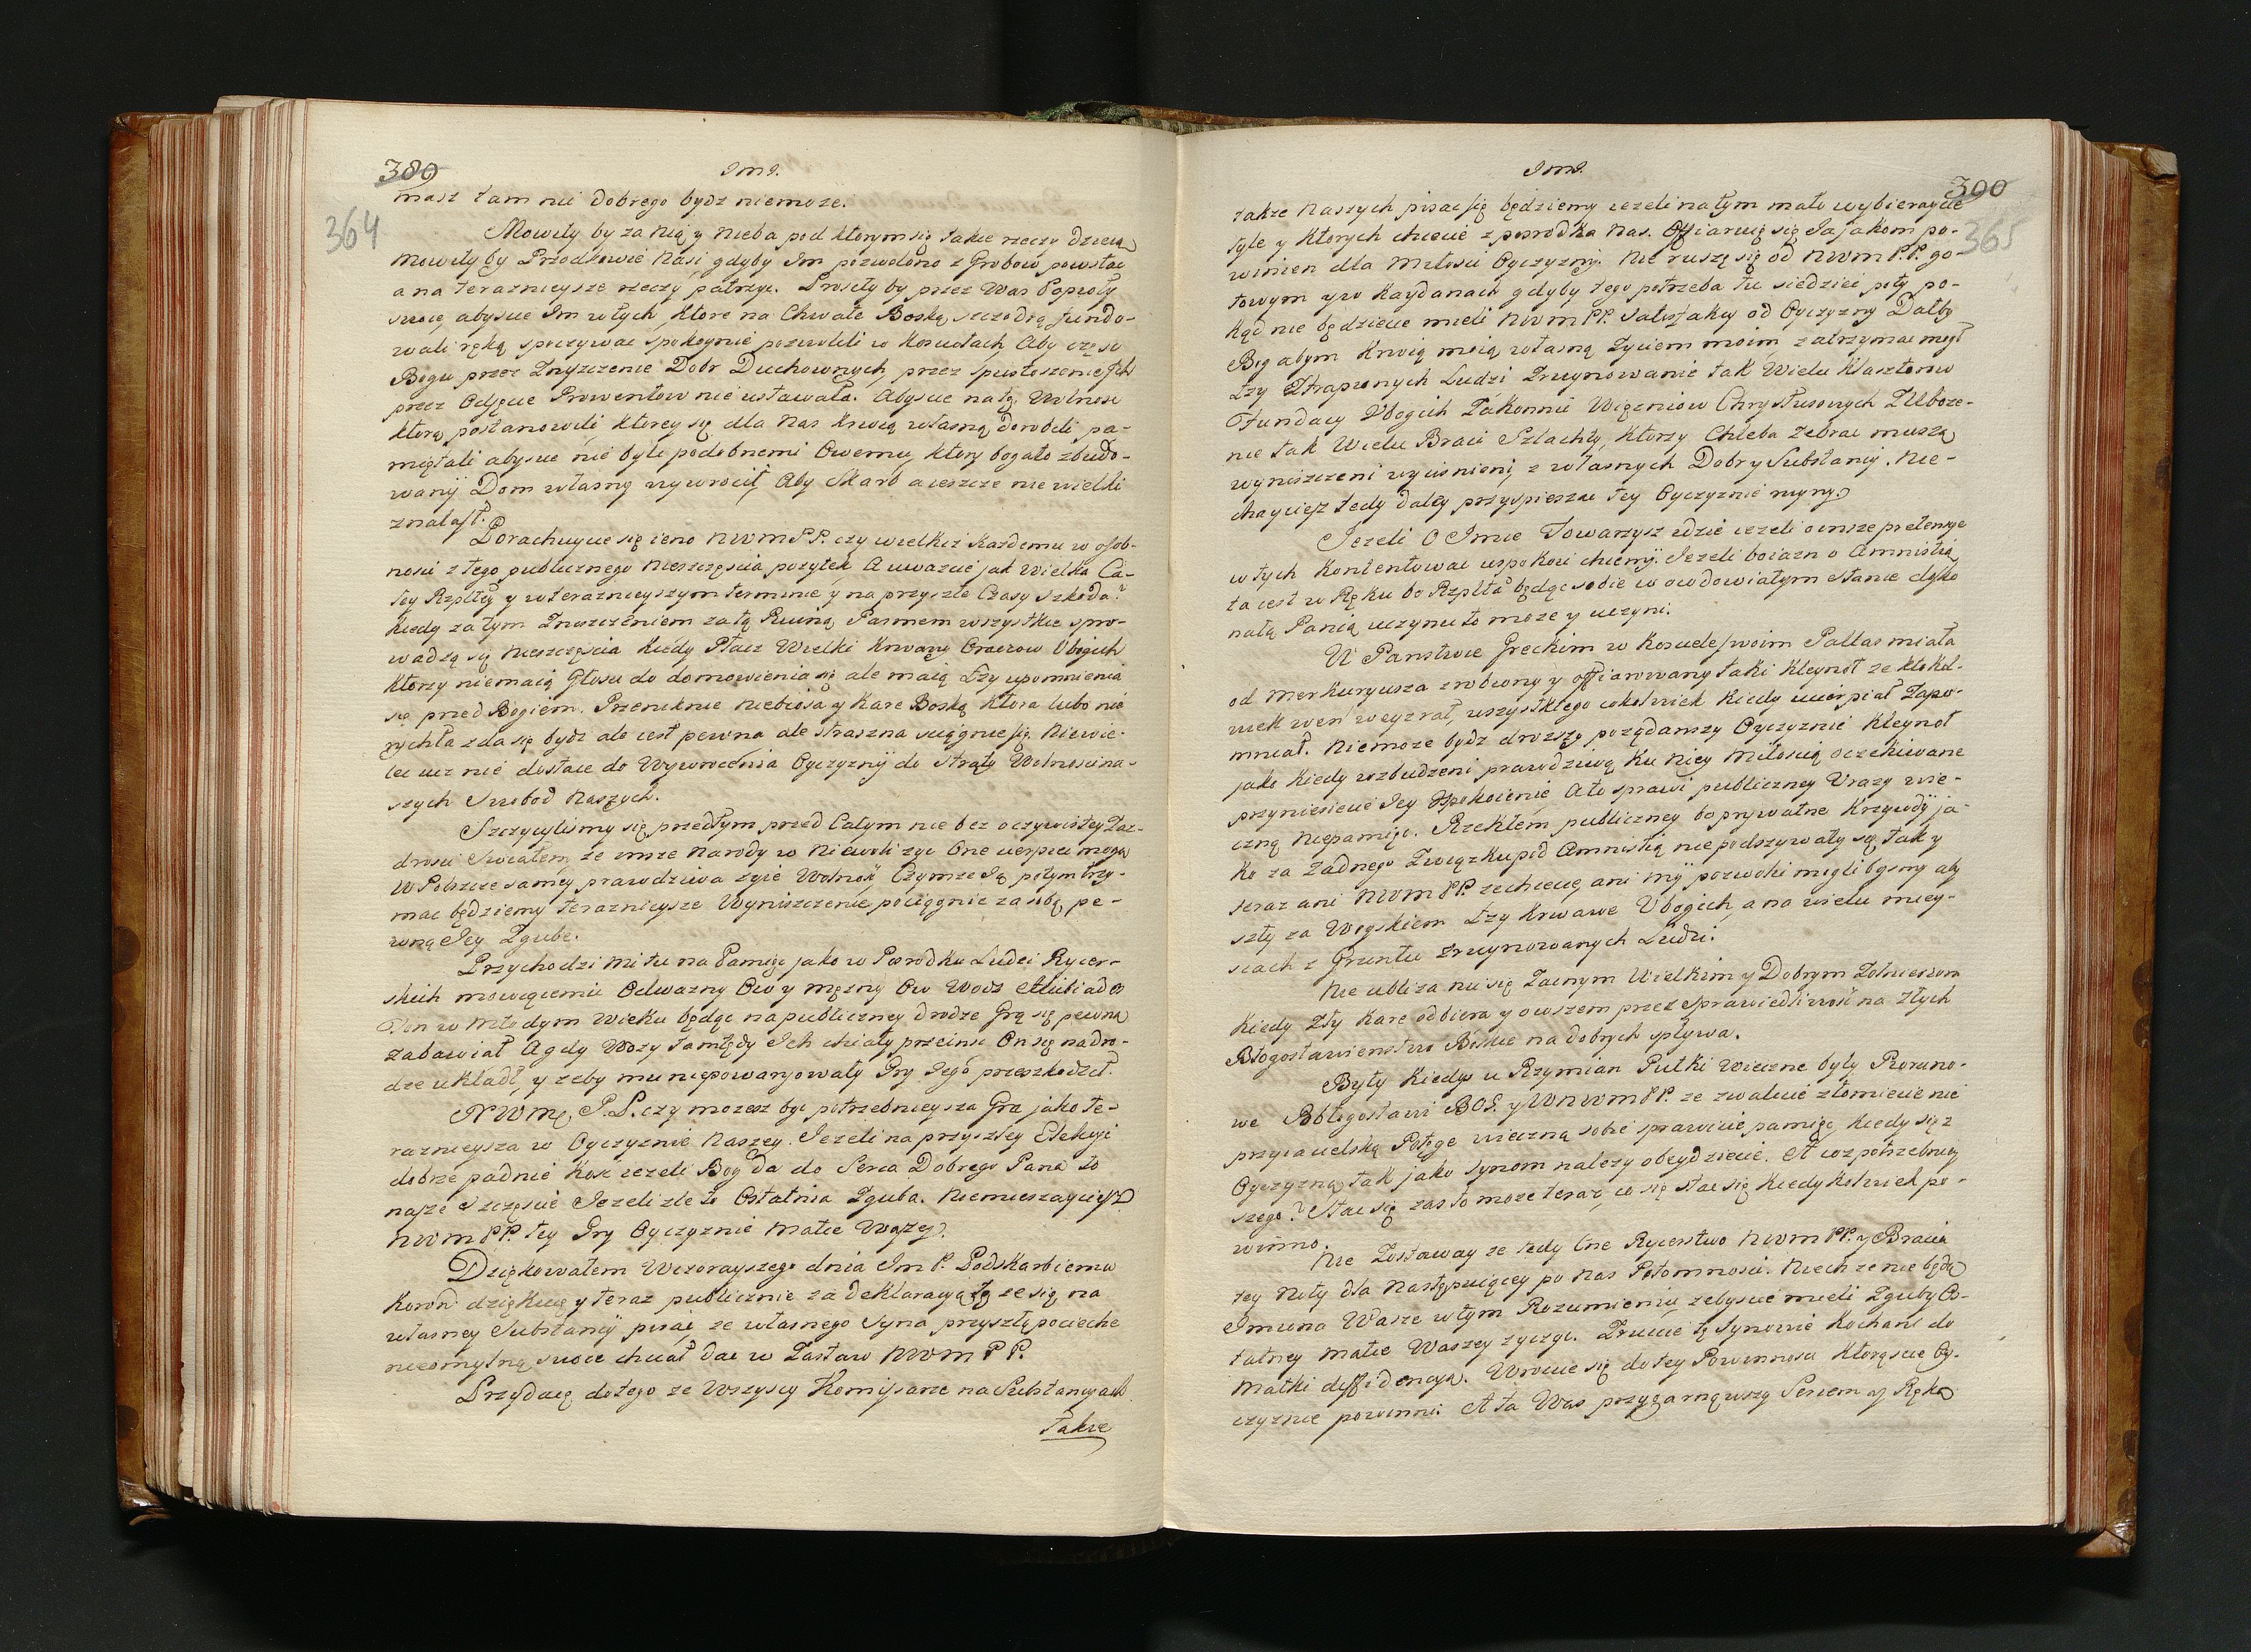 389
364
J M J.
masz tam nic dobrego bydz niemoze.
Mowiły by za Nią y Nieba pod ktorym się takie rzeczy dzieią
Mowiły by Przodkowie Nasi gdyby Im pozwolono z Grobow powstac
a na terazniejsze rzeczy patrzyc. Prosiły by przez Was Popioły
swoie, abyscie Im w tych, ktore na Chwałe Boską szczodrą fundo-
wali ręką spoczywac spokoynie pozwolili w Kosciołach, Aby częsc
Bogu przez Znyszczenie Dobr Duchownych, przez spustoszenie Ich
przez Odjęcie Prowentow nie ustawała. Abyscie na tę Wolnosc
ktorą postanowili, ktorey się dla Nas krwią własną dorobili pa-
miętali abyscie nie byli podobnemi Owemu, ktory bogato zbudo-
wany Dom własny wywrocił, Aby Skarb a ieszcze nie wielki
znalasł.
Porachuycie się ieno NWM PP. czy wielkiz Każdemu w osob-
nosci z tego publicznego Nieszczęscia pozytek A uwazcie jak Wielka Ca-
łey Rzpltey y w terazniejszym terminie y na przyszłe Czasy szkoda?
Kiedy za tym Zniszczeniem za tą Ruiną Pasmem wszystkie spro-
wadzą się Nieszczęscia Kiedy Płacz Wielki Krwawy Oraczow Ubogich
Ktorzy niemaią Głosu do domowienia się ale maią Łzy upomnienia
się przed Bogiem. Przeniknie Niebiosa y Kare Boską Ktora lubo nie
rychła zda się bydz ale iest pewna ale straszna sciągnie się. Niewie-
lec iuz nie dostaie do Wywrocenia Oyczyzny do straty Wolnosci na-
szych Swobod Naszych.
Szczycilismy się przedtym przed Całym nie bez oczywistey Zaz-
drosci Swiatem, ze insze Narody w Niewoli zyc One cierpiec mogą
W Polszcze samey prawdziwa zyie Wolnosc, Czymze Ią potym trzy-
mac będziemy terazniejsze Wyniszczenie pociągnie za sobą pe-
wną Iey Zgube.
Przychodzi mi tu na Pamięc jako w Posrodku Ludzi Rycer-
skich mowiącemu Odwazny Ow y mężny Ow Wodz Alcibiades
Ten w Młodym Wieku będąc na publiczney drodze Grą się pewną
zabawiał A gdy Wozy tamtędy Ich chciały przeiesc On się na dro-
dze układł, y zeby mu niepowarjowały Gry Jego przeszkodził.
NWM. P.P. czy mozesz byc potrzebniejsza Gra jako te-
razniejsza w Oyczyznie Naszey. Jezeli na przyszłey Elekcyi
dobrze padnie Kosc iezeli Bog da do Serca Dobrego Pana to
nasze szczęscie Jezeli zle to Ostatnia Zguba. Niemieszayciesz
NWM PP. tey Gry Oyczyznie Matce Waszey.
Dziękowałem Wczorayszego dnia Im P. Podskarbiemu
Koron dziękuię y teraz publicznie za deklaracyą tę ze się na
własney Substancyi pisac, ze własnego Syna przyszłą pocieche
nieomylną swoie chciał dac w Zastaw NWM P P.
Przydaię do tego ze Wszyscy Komissarze na Substancyach
Takze
J M J.
390
365
takze Naszych pisac się będziemy iezeli na tym mało wybieraycie
tyle y ktorych chcecie z posrodka Nas. Offiaruię się Ia jakom po-
winien dla Miłosci Oyczyzny. Nie ruszę się od NWM P.P. go-
towym y w Kaydanach gdyby tego potrzeba tu siedziec poty po-
kąd nie będziecie mieli NWM PP. satisfakcyi od Oyczyzny Dałby
Bog abym Krwią moią własną Zyciem moim zatrzymac mogł
Łzy Strapionych Ludzi Zruynowanie tak Wielu Klasztorow
Fundacy Ubogich Zakonnic Więzniow Chrystusowych Zuboze-
nie tak Wielu Braci Szlachty, ktorzy Chleba zebrac muszą
wyniszczeni wycisnieni, z własnych Dobr y Substancij. Nie-
chayciesz tedy daley przyspieszac tey Oyczyznie ruyny.
Jezeli O Imie Towarzysz idzie iezeli o insze pretensye
w tych Kontentowac uspokoic chcemy. Jezeli boiazn o Amnistią
ta iest w Ręku bo Rzplta będąc sobie w owdowiałym stanie tylko
natą Panią uczynic to moze y uczyni.
W Panstwie Greckim w Kosciele swoim Pallas miała
od Merkuryusza zrobiony y offiarowany taki Kleynot ze ktokol-
wiek wen weyzrał, wszystkiego cokolwiek Kiedy ucierpiał Zapo-
mniał. Niemoze bydz drozszy pozędanszy Oyczyznie Kleynot
jako Kiedy wzbudzeni prawdziwą Ku Niey Miłoscią oczekiwane
przyniesiecie Jey Uspokoienie A to sprawi publiczney Urazy wie-
czną Niepamięc. Rzekłem publiczney bo prywatne Krzywdy ja-
ko za Zadnego Związku pod Amnistią nie podszywały się, tak y
teraz ani NWM PP. zechcecie, ani my pozwolic mogli bysmy aby
szły za Woyskiem Łzy Krwawe Ubogich, a na wielu miey-
scach z Gruntu zruynowanych Ludzi.
Nie ubliza nic się Zacnym Wielkim y Dobrym Zołnierzom
Kiedy Zły Kare odbiera y owszem przez sprawiedliwosc na Złych
Błogosławienstwo Boskie na dobrych spływa.
Były Kiedys u Rzymian Pułki Wieczne były Pioruno-
we Błogosławi BOG. y WNWM PP. ze zwalicie złomicie nie
przyiacielską Potęge wieczną sobie sprawicie pamięc, kiedy się z
Oyczyzną tak jako synom nalezy obeydziecie. A coz potrzebniey
szego? Stac się zas to moze teraz, co się stac się kiedykolwiek po-
winno.
Nie Zostaway ze tedy Cne Rycerstwo NWM PP. y Bracia
tey Noty dla Następuiącey po Nas Potomnosci. Niech ze nie będą
Imiona Wasze w tym Rozumieniu zebyscie mieli Zguby Os-
tatney Matce Waszey zyczyc. Zruccie tę Synowie Kochani do
Matki diffidencyą. Wroccie się do tey Powinnosci Ktorąscie Oy-
czyznie powinni A ta Was przygarnąwszy Sercem y Ręką